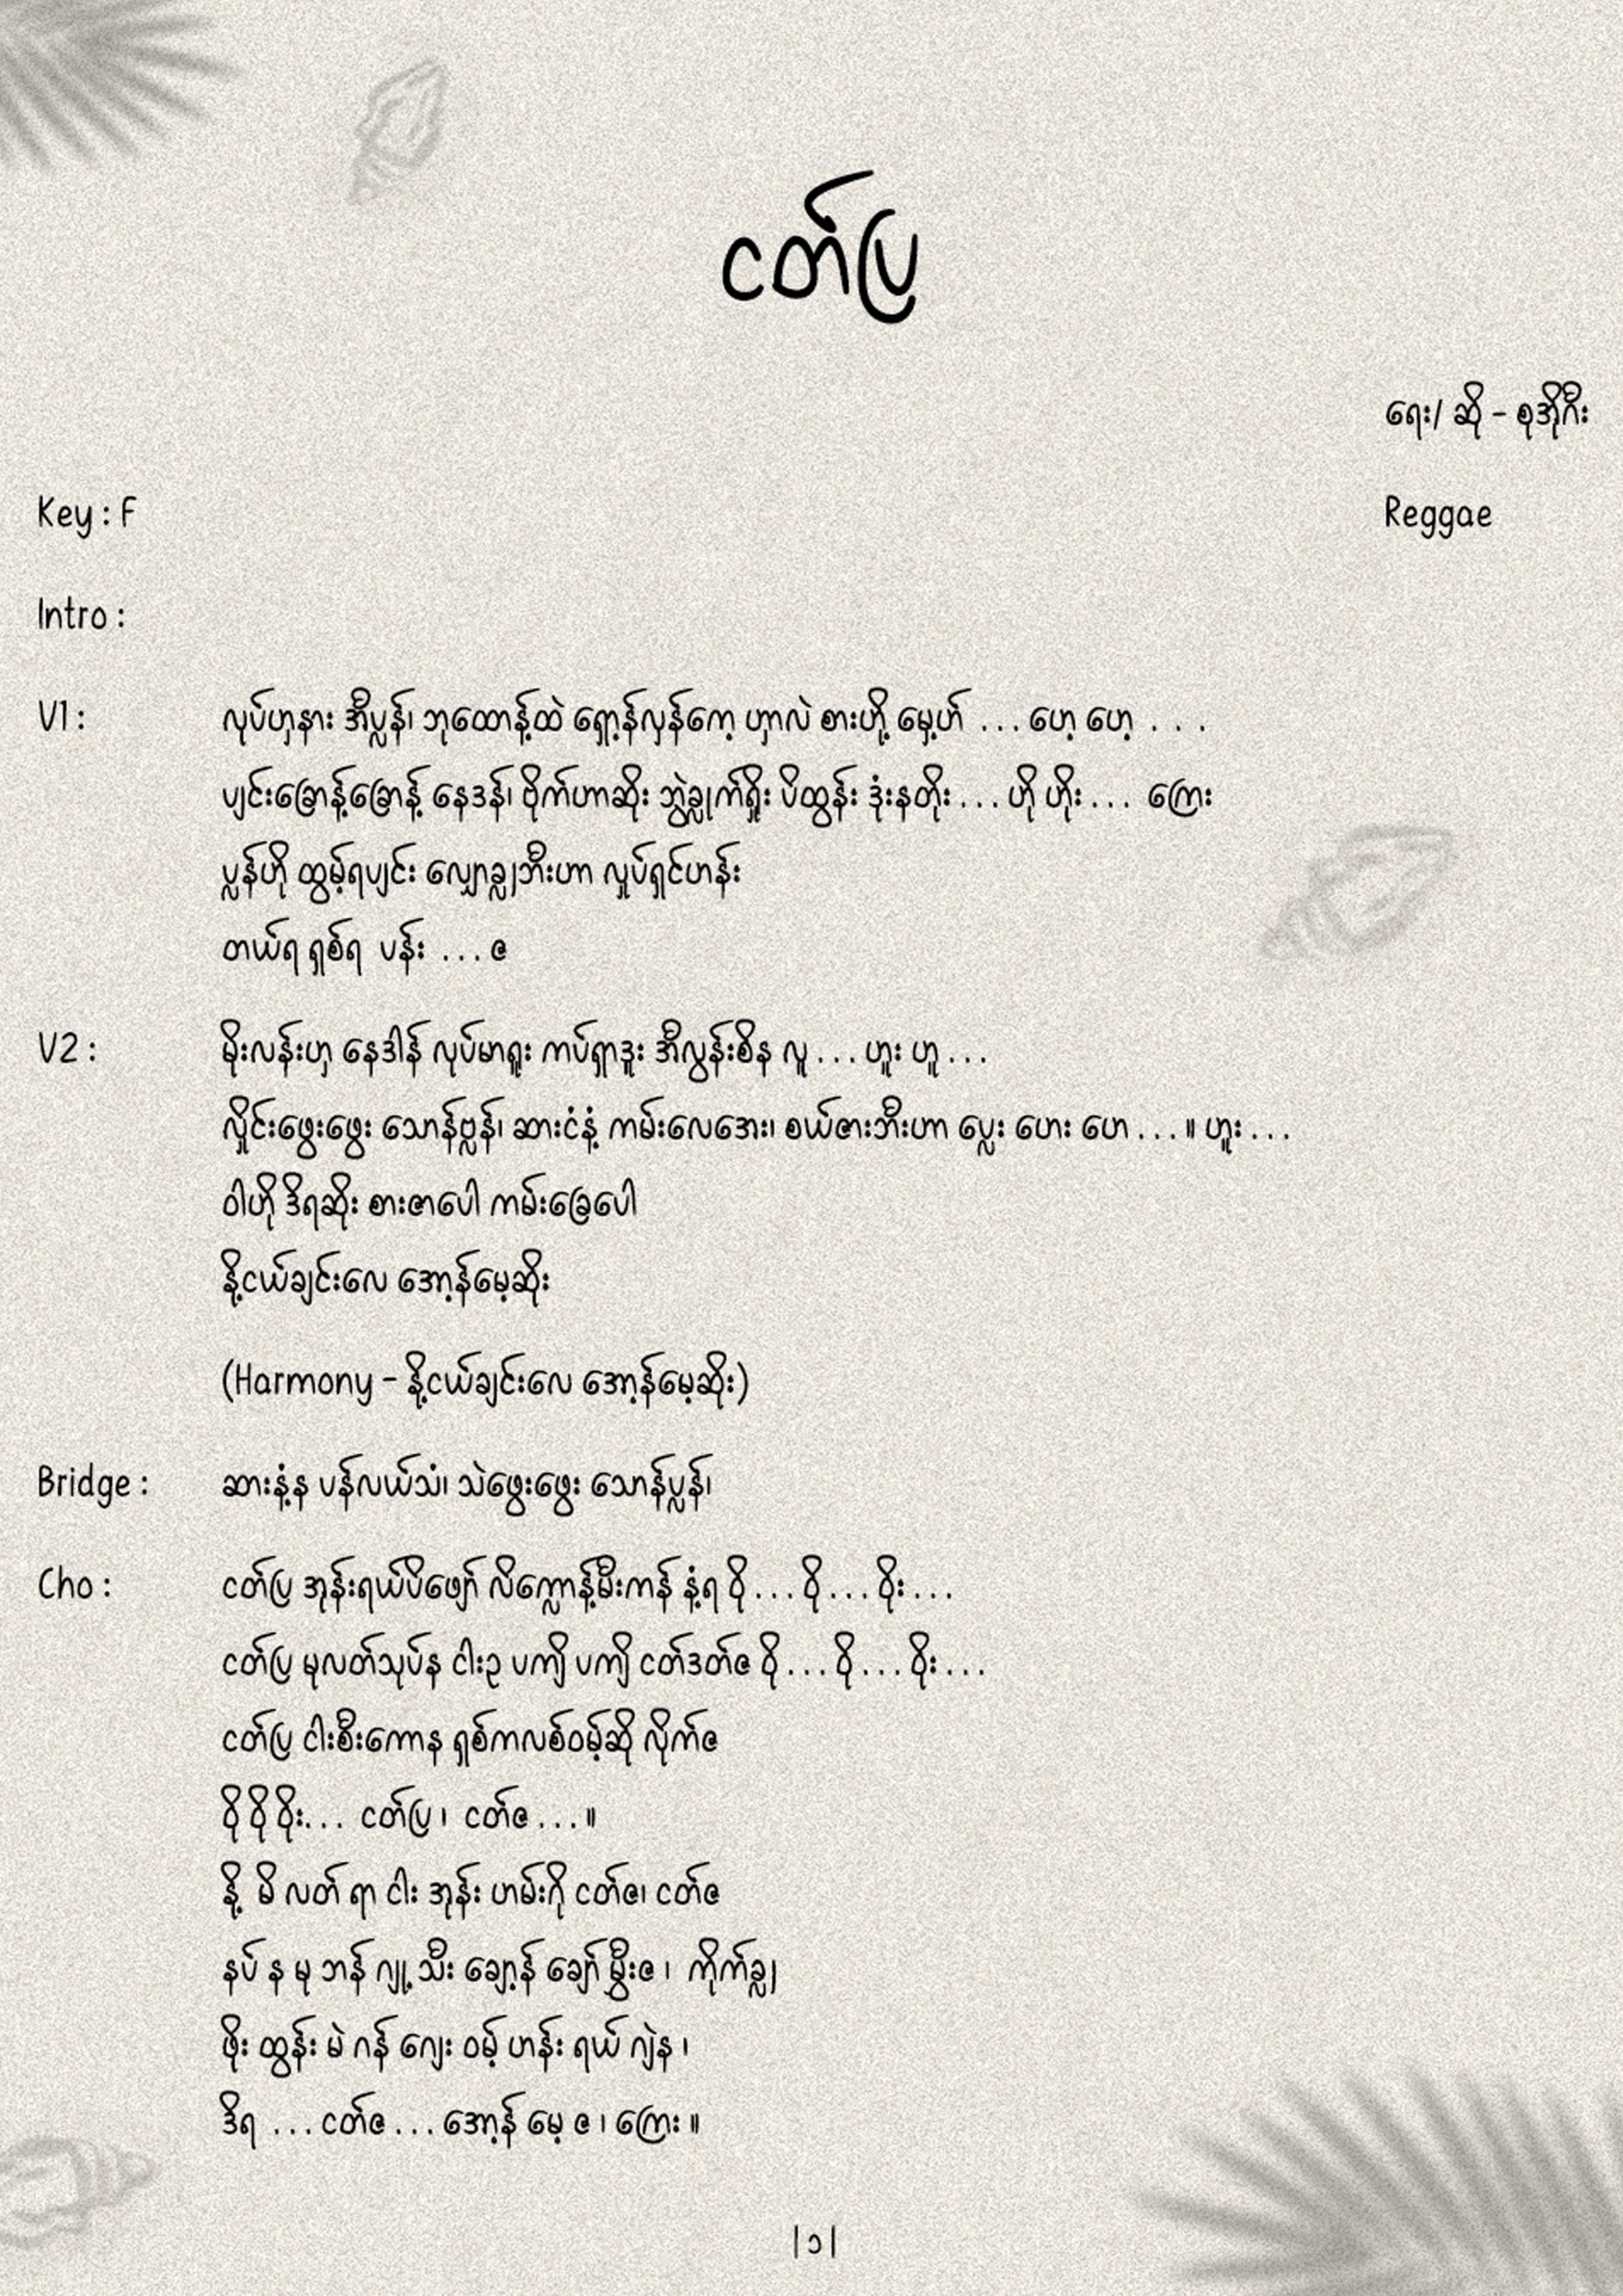 ငတ်ပြ
ရေး/ ဆို - စုအိုဂီး
Key : F
Reggae
Intro :
V1 : လုပ်ဟှနား အီပ္လန်၊ ဘုထောန့်ထဲ ရှော့န်လှန်ကေ့ ဟှာလဲ စားဟို့ မှေ့ဟ် ... ဟေ့ ဟေ့ ...
ပျင်းခြောန့်ခြောန့် နေဒန်၊ ဗိုက်ဟာဆိုး ဘွဲခ္လုက်ရှိုး ပိထွန်း ဒုံးနတိုး ... ဟို ဟိုး ... ကြေး
ပ္လန်ဟို ထွမ့်ရပျင်း လျှောခ္လျဘီးဟာ လှုပ်ရှင်ဟန်း
တယ်ရ ရှစ်ရ ပန်း ... ဇ
V2 : မိုးလန်းဟှ နေဒါန် လုပ်မာရူး ကပ်ရှာဒူး အီလွန်းစိန လူ ... ဟူး ဟူ ...
လှိုင်းဖွေးဖွေး သောန်ဗ္လန်၊ ဆားငံနံ့ ကမ်းလေအေး၊ စယ်ဇားဘီးဟာ ပ္လေး ဟေး ဟေ ... ။ ဟူး ...
ဝါဟို ဒိရဆိုး စားဇာပေါ ကမ်းခြေပေါ
နို့ငယ်ချင်းလေ အော့န်မေ့ဆိုး
(Harmony - နို့ငယ်ချင်းလေ အော့န်မေ့ဆိုး)
Bridge : ဆားနံ့န ပန်လယ်သံ၊ သဲဖွေးဖွေး သောန်ပ္လန်၊
Cho : ငတ်ပြ အုန်းရယ်ပိဖျော် လိက္လောန့်မီးကန် နံ့ရ ဝို ... ဝို ... ဝိုး ...
ငတ်ပြ မုလတ်သုပ်န ငါးဥ ပကျိ ပကျိ ငတ်ဒတ်ဇ ဝို ... ဝို ... ဝိုး ...
ငတ်ပြ ငါးစီးကောန ရှစ်ကလစ်ဝမ့်ဆို လိုက်ဇ
ဝို ဝို ဝိုး... ငတ်ပြ ၊ ငတ်ဇ ... ။
နို့ မိ လတ် ရာ ငါး အုန်း ဟမ်းဂို ငတ်ဇ၊ ငတ်ဇ
နပ် န မု ဘန် ဂျု့ သီး ချော့န် ချော် မွှီးဇ ၊ ကိုက်ခ္လျ
ဖိုး ထွန်း မဲ ဂန် ဂျေး ဝမ့် ဟန်း ရယ် ဂျဲန ၊
ဒိရ ... ငတ်ဇ ... အော့န် မေ့ ဇ ၊ ကြေး ။
|၁|